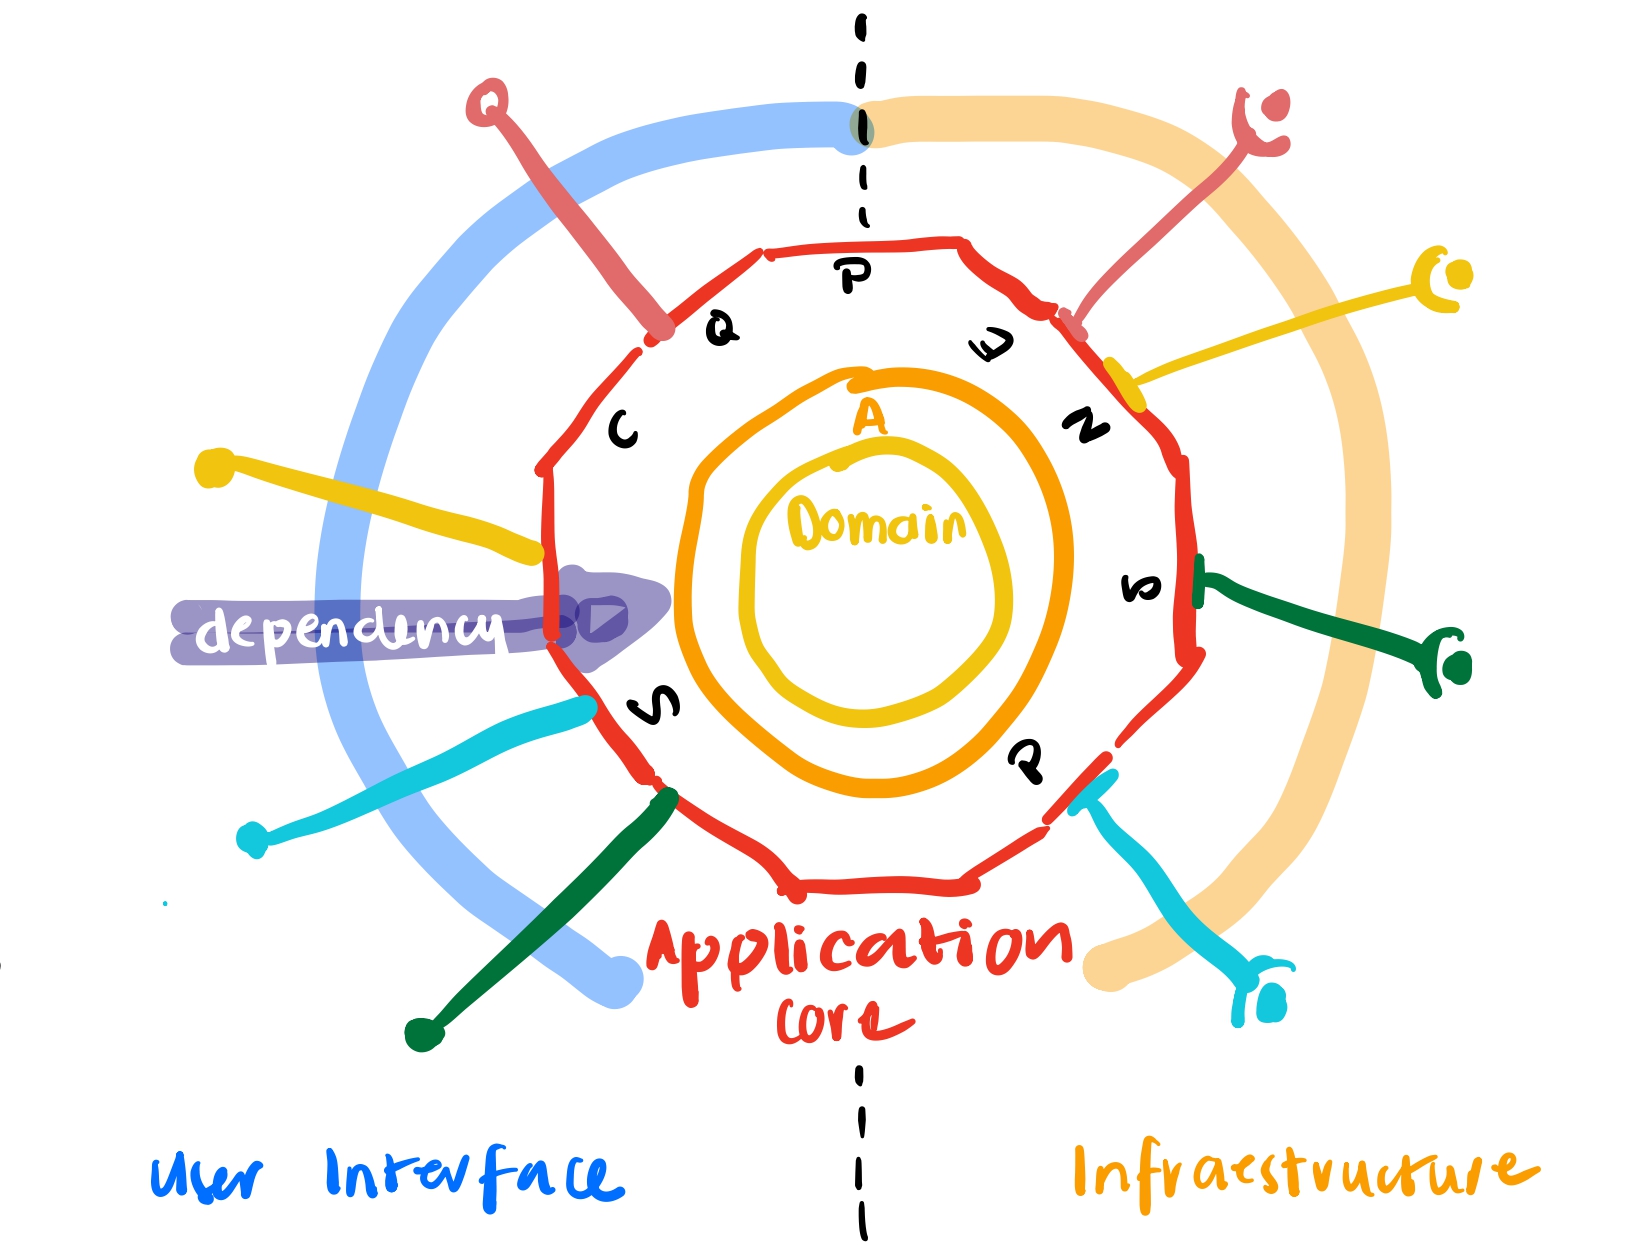 P
Q
E
C
A
N
Domain
dependency
S
P
Application
core
User Interface
Infraestructure